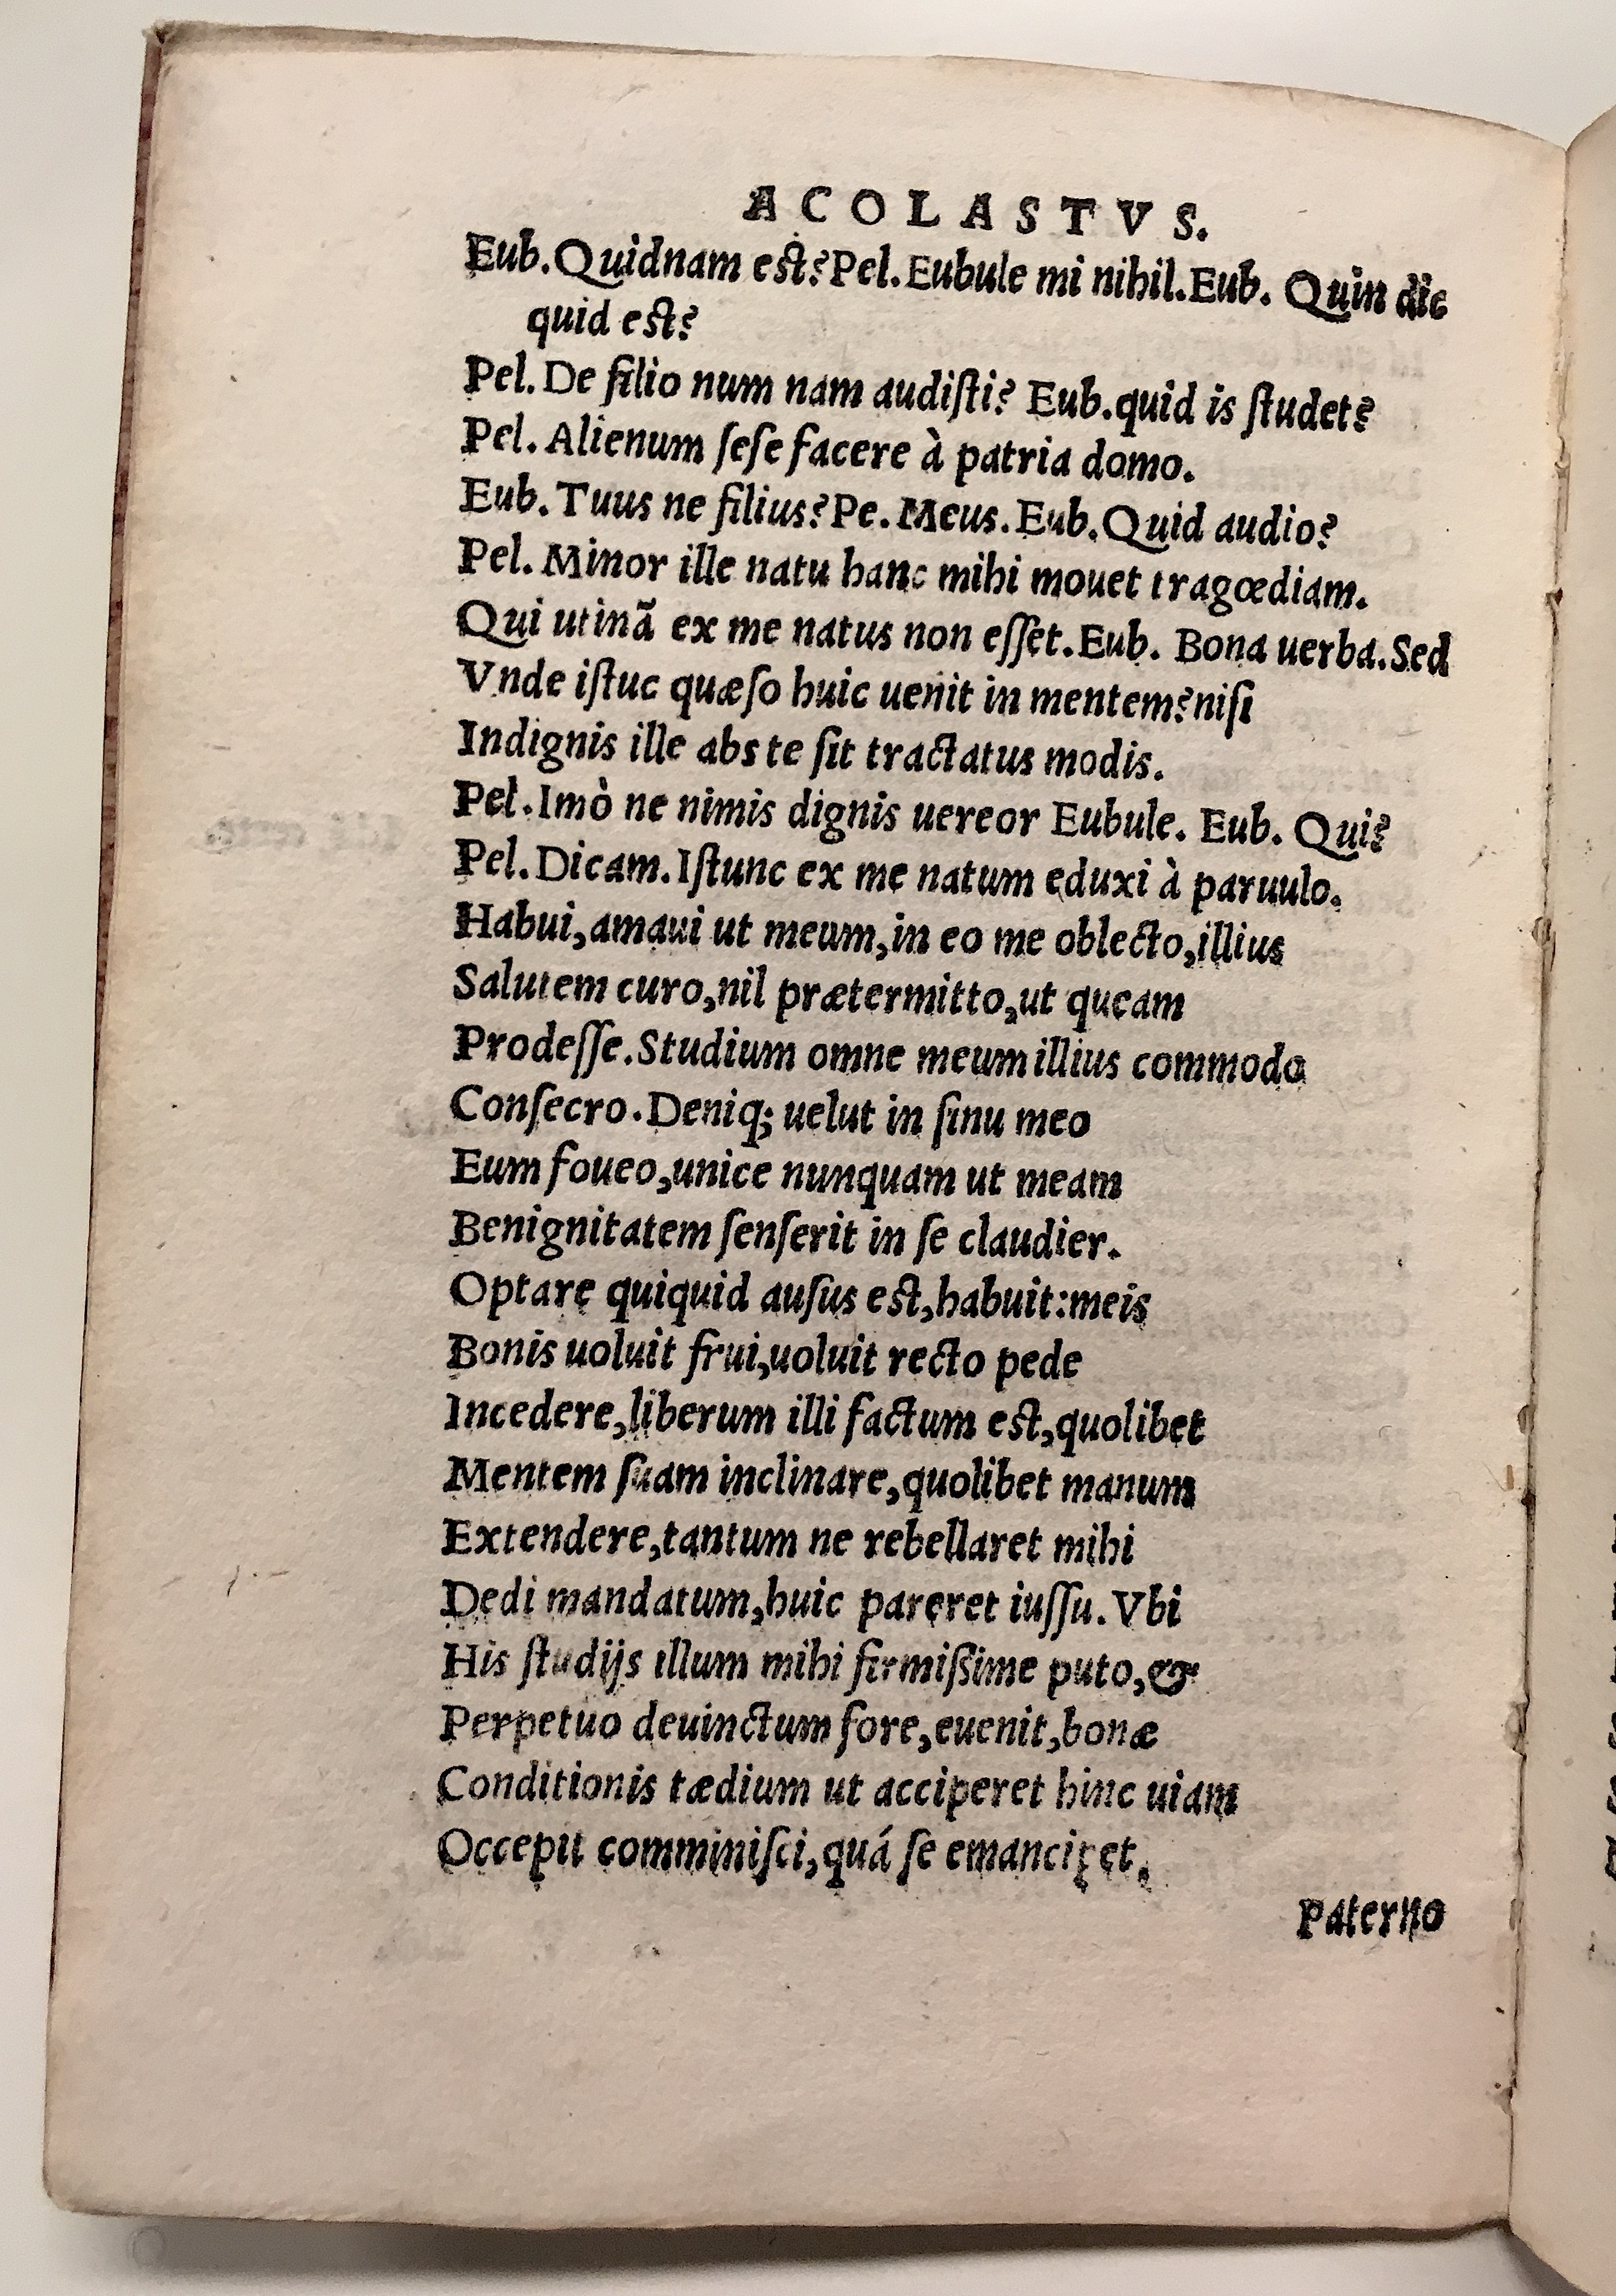 ACOLASTVS.
Eub. Quidnam est? Pel. Eubule mi nihil. Eub. Quin dic
quid est?
Pel. De filio num nam audiſti? Eub. quid is ſtudet?
Pel. Alienum ſeſe facere à patria domo.
Eub. Tuus ne filius? Pe. Meus. Eub. Quid audio?
Pel. Minor ille natu hanc mihi mouet tragœdiam.
Qui utinã ex me natus non eſſet. Eub. Bona uerba. Sed
Vnde iſtuc quæſo huic uenit in mentem? niſi
Indignis ille abs te ſit tractatus modis.
Pel. Imò ne nimis dignis uereor Eubule. Eub. Qui?
Pel. Dicam. Iſtunc ex me natum eduxi à paruulo.
Habui, amaui ut meum, in eo me oblecto, illius
Salutem curo, nil prætermitto, ut queam
Prodeſſe. Studium omne meum illius commodo
Conſecro. Deniq; uelut in ſinu meo
Eum foueo, unice nunquam ut meam
Benignitatem ſenſerit in ſe claudier.
Optare quiquid auſus est, habuit: meis
Bonis uoluit frui, uoluit recto pede
Incedere, liberum illi factum est, quolibet
Mentem ſuam inclinare, quolibet manum
Extendere, tantum ne rebellaret mihi
Dedi mandatum, huic pareret iuſſu. Vbi
His ſtudijs illum mihi firmiſsime puto, &
Perpetuo deuinctum fore, euenit, bonæ
Conditionis tædium ut acciperet hinc uiam
Occepit comminiſci, quá ſe emancipet,
Paterno